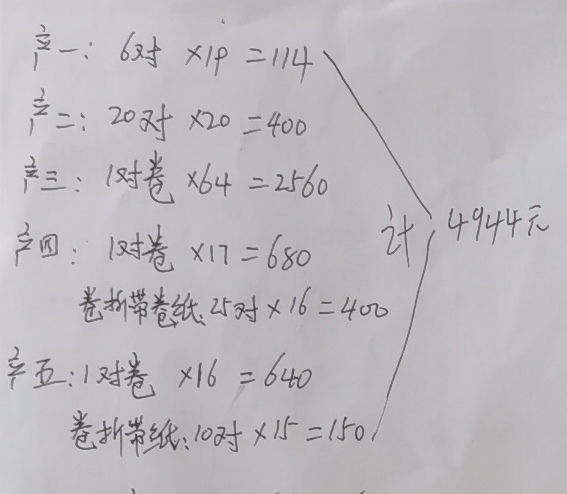 产一: 6对 ×19 =114
产二: 20对 ×20 =400
产三: 1对卷 ×64 =2560
产四: 1对卷 ×17 =680
卷折带卷纸: 25对 ×16 =400
计 4944元
产五: 1对卷 ×16 =640
卷折带纸: 10对 ×15 =150